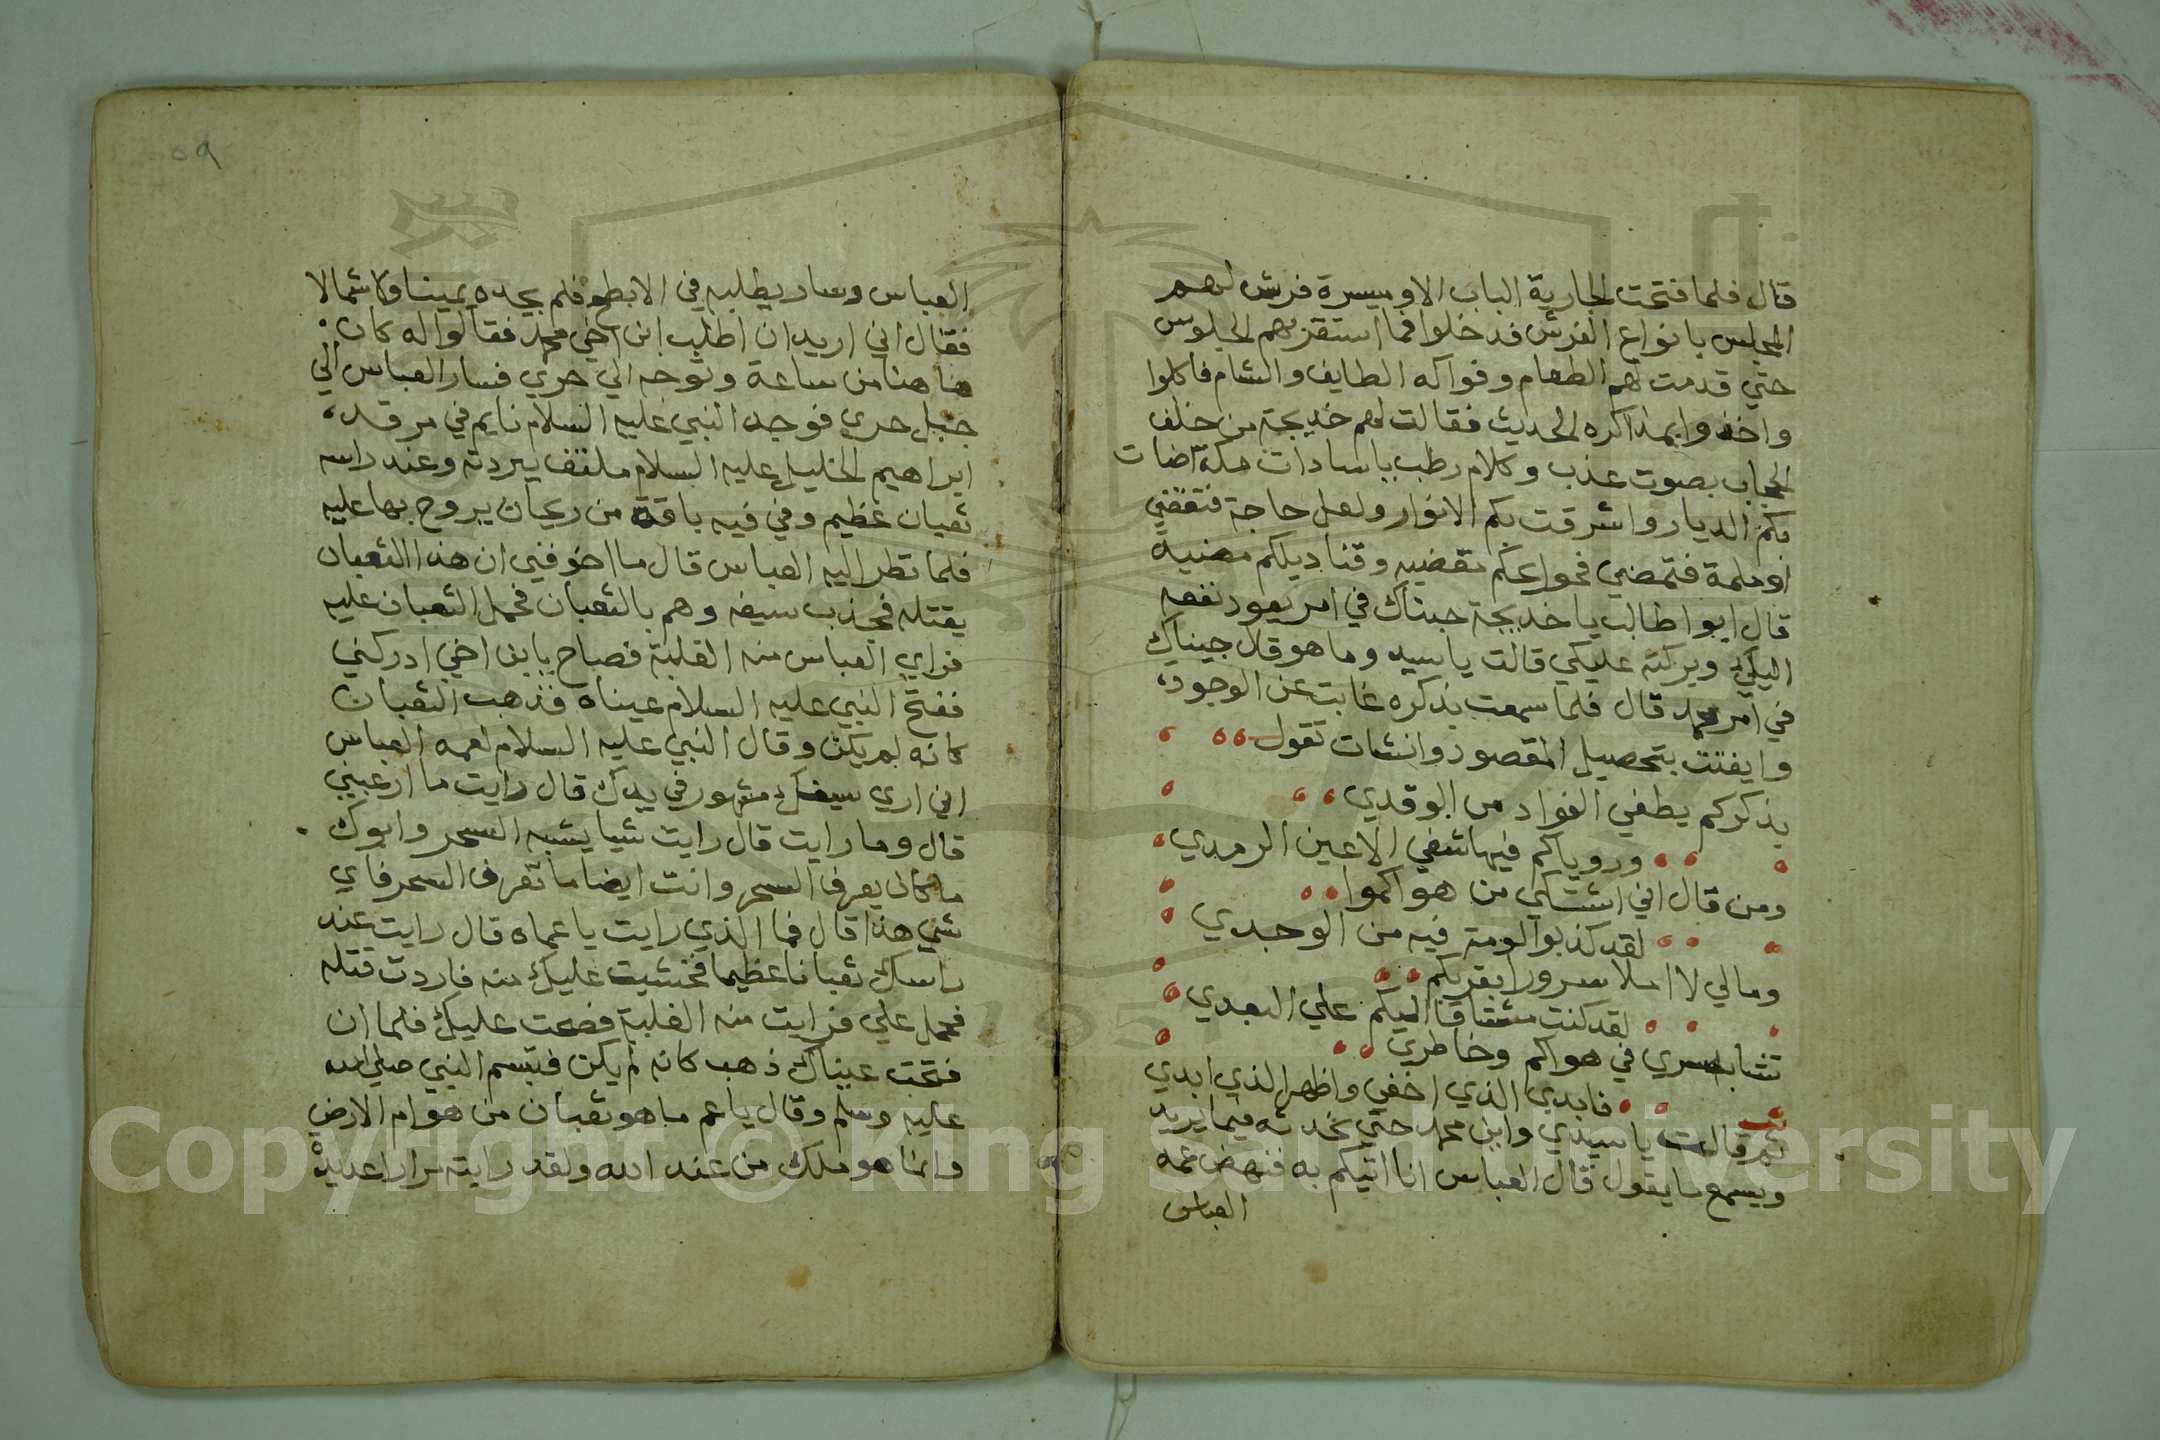 قال فلما فتحت الجارية الباب الا وميسرة فرش لهم
المجلس بانواع الفرش فدخلوا فما استقر بهم الجلوس
حتي قدمت لهم الطعام وفواكه الطايف والشام فاكلوا
واخذوا بمذاكره الحديث فقالت لهم خديجة من خلف
الحجاب بصوت عذب وكلام رطب ياسادات مكة اضات
بكم الديار واشرقت بكم الانوار ولعل حاجة فتقضي
او ملمة فتمضي فحوايجكم مقضيه وقناديلكم مضية
قال ابوا طالب يا خديجة جيناك في امر يعود نفعه
اليكي وبركته عليكي قالت يا سيدي وما هو قال جيناك
في امر محمد قال فلما سمعت بذكره غابت عن الوجود
وايقنت بتحصيل المقصود وانشات تقول
بذكركم يطفي الفواد من الوقدي
وروياكم فيها شفي الاعين الرمدي
ومن قال اني اشتكي من هواكموا
لقد كذبوا لومة فيه من الوجدي
ومالي لا املا سرورا بقربكم
لقد كنت مشتاقا اليكم علي البعدي
تشابه سري في هواكم وخاطري
فابدي الذي اخفي واظهر الذي ابدي
ثم قالت يا سيدي واين محمد حتي نحدثه فيما يريد
ويسمع ما يقول قال العباس انا اتيكم به فنهض عمه
العباس
٥٩
العباس وسار يطلبه في الابطح فلم يجده يمينا ولا شمالا
فقال اني اريد ان اطلب ابن اخي محمد فقالوا له كان
هنا هنا من ساعة وتوجه الي حري فسار العباس الي
جبل حري فوجد النبي عليه السلام نايم في مرقد
ابراهيم الخليل عليه السلام ملتف ببردته وعند راسه
ثعبان عظيم وفي فيه باقة من ريحان يروح بها عليه
فلما نظر اليه العباس قال ما اخوفني ان هذا الثعبان
يقتله فجذب سيفه وهم بالثعبان فحمل الثعبان عليه
فراي العباس منه الغلبة فصاح يابن اخي ادركني
ففتح النبي عليه السلام عيناه فذهب الثعبان
كانه لم يكن وقال النبي عليه السلام لعمه العباس
اني اري سيفك مشهور في يدك قال رايت ما ارعبني
قال وما رايت قال رايت شيا يشبه السحر وابوك
ما كان يعرف السحر وانت ايضا ما تعرف السحر فاي
شي هذا قال فما الذي رايت يا عماه قال رايت عند
راسك ثعبانا عظيما فخشيت عليك منه فاردت قتله
فحمل علي فرايت منه الغلبة فصحت عليك فلما ان
فتحت عيناك ذهب كانه لم يكن فتبسم النبي صلي الله
عليه وسلم وقال يا عم ما هو ثعبان من هوام الارض
وانما هو ملك من عند الله ولقد رايته مرارا عديدة
Copyright © King Saud University